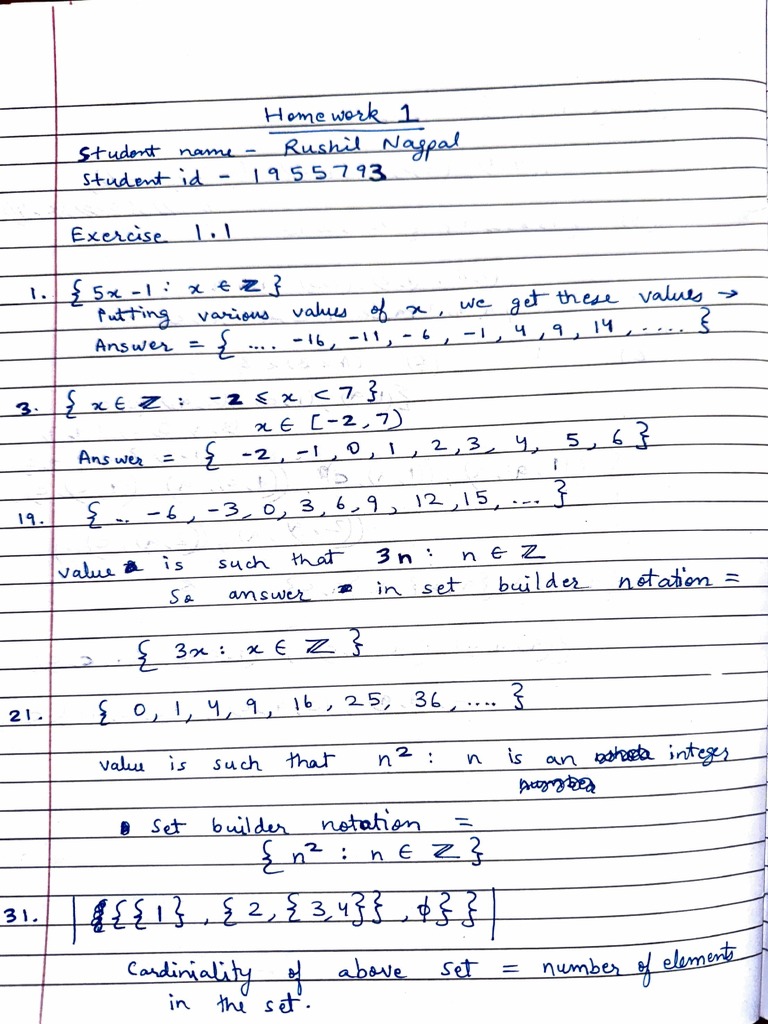 Homework 1
Student name - Rushil Nagpal
Student id - 1955793
Exercise 1.1
1. { 5x - 1 : x ∈ ℤ }
Putting various values of x, we get these values →
Answer = { .... -16, -11, -6, -1, 4, 9, 14, ..... }
3. { x ∈ ℤ : -2 ≤ x < 7 }
x ∈ [-2, 7)
Answer = { -2, -1, 0, 1, 2, 3, 4, 5, 6 }
19. { .. -6, -3, 0, 3, 6, 9, 12, 15, ... }
value is such that 3n : n ∈ ℤ
So answer in set builder notation =
{ 3x : x ∈ ℤ }
21. { 0, 1, 4, 9, 16, 25, 36, .... }
value is such that n² : n is an integer
Set builder notation =
{ n² : n ∈ ℤ }
31. | {{{1}, {2, {3,4}}, ϕ}} |
Cardiniality of above set = number of elements
in the set.